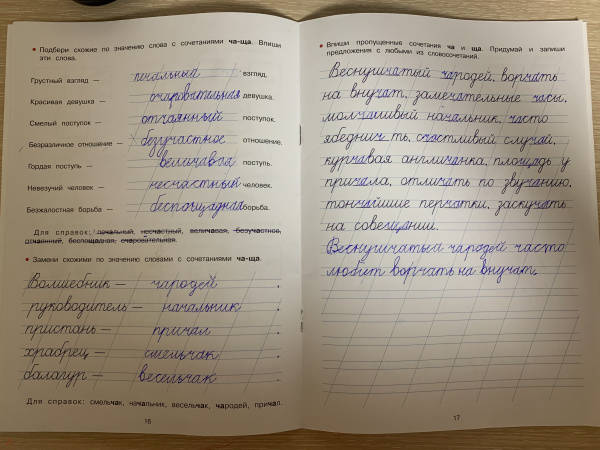 • Подбери схожие по значению слова с сочетаниями ча-ща. Впиши
эти слова.
Грустный взгляд — печальный взгляд.
Красивая девушка — очаровательная девушка.
Смелый поступок — отчаянный поступок.
Безразличное отношение — безучастное отношение.
Гордая поступь — величавая поступь.
Невезучий человек — несчастный человек.
Безжалостная борьба — беспощадная борьба.
Для справок: печальный, несчастный, величавая, безучастное,
отчаянный, беспощадная, очаровательная.
• Замени схожими по значению словами с сочетаниями ча-ща.
Волшебник — чародей.
руководитель — начальник.
пристань — причал.
храбрец — смельчак.
балагур — весельчак.
Для справок: смельчак, начальник, весельчак, чародей, причал.
16
• Впиши пропущенные сочетания ча и ща. Придумай и запиши
предложения с любыми из словосочетаний.
Веснушчатый чародей, ворчать
на внучат, замечательные часы,
молчаливый начальник, часто
ябеднич ть, счастливый случай,
курчавая англичанка, площадь у
причала, отличать по звучанию,
тончайшие перчатки, заскучать
на совещании.
Веснушчатый чародей часто
любит ворчать на внучат.
17